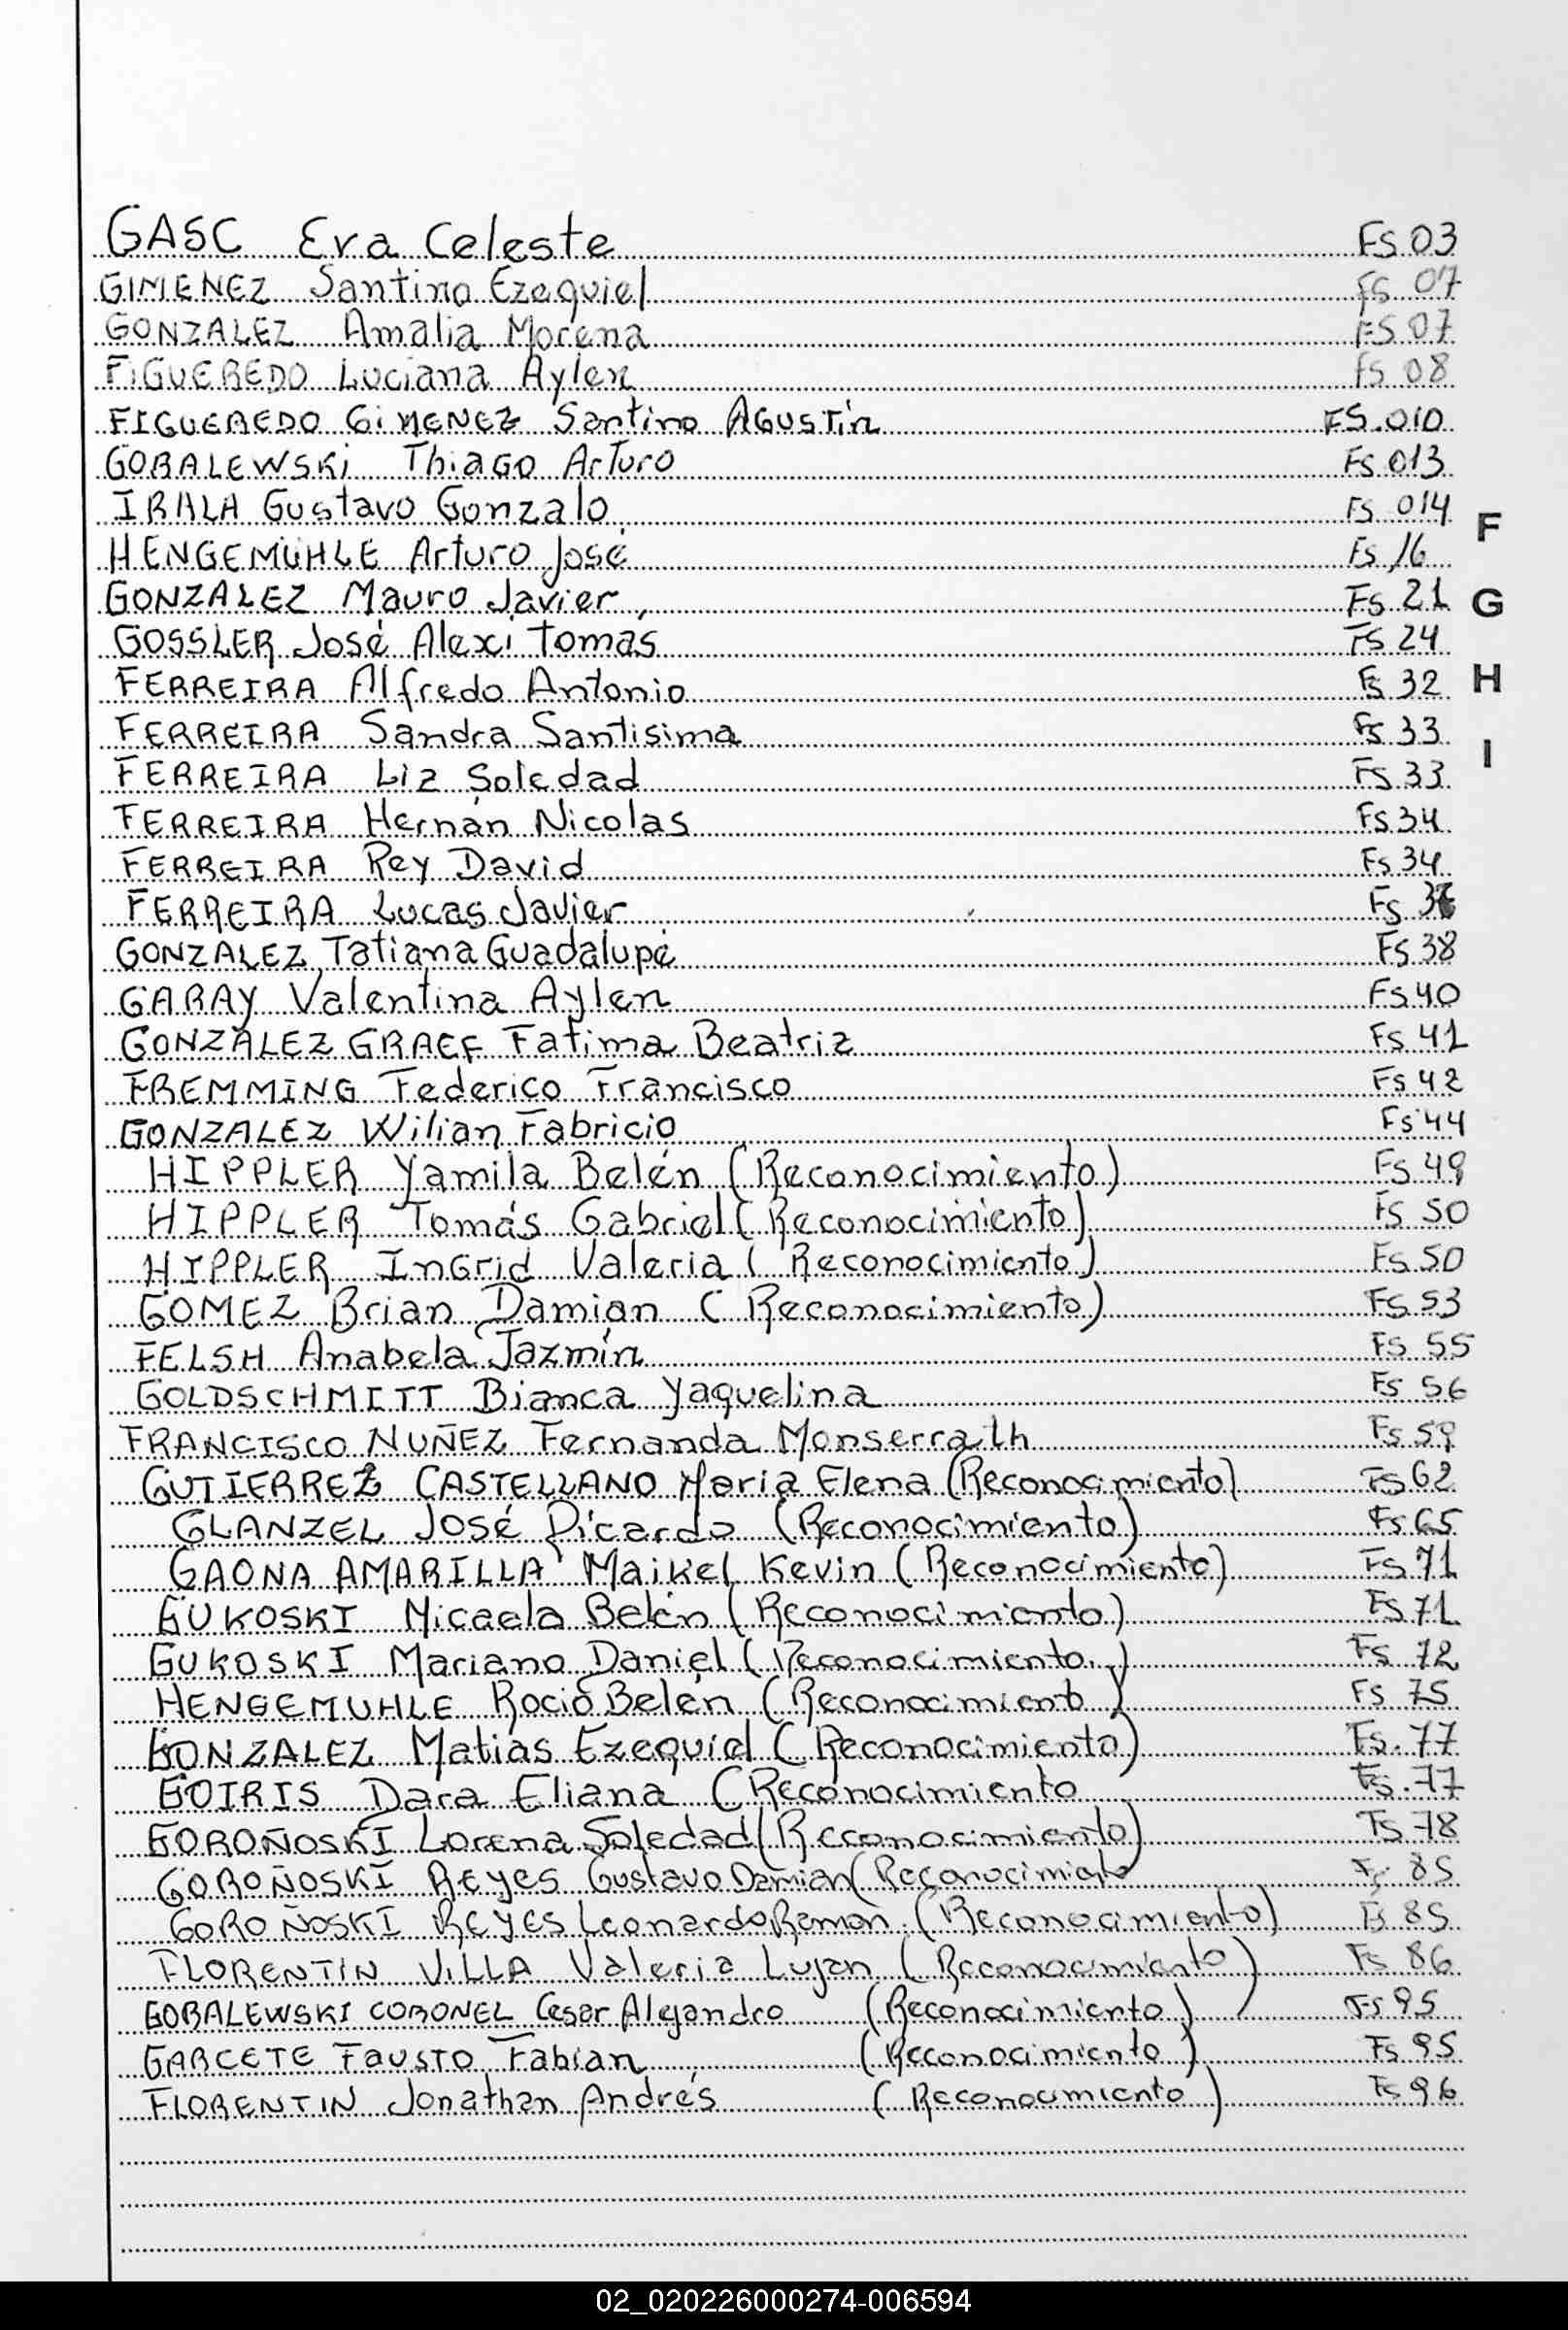 GASC Eva Celeste FS 03
GIMENEZ Santino Ezequiel FS 07
GONZALEZ Amalia Morena FS 07
FIGUEREDO Luciana Aylen FS 08
FIGUEREDO GIMENEZ Santino AGUSTín FS.010
GORALEWSKi ThiaGO ArTuro FS 013
IRALA Gustavo Gonzalo FS 014
F
HENGEMÜHLE Arturo José FS 16
GONZALEZ Mauro Javier FS 21
G
GOSSLER José Alexi Tomás FS 24
FERREIRA Alfredo Antonio FS 32
H
FERREIRA Sandra Santisima FS 33
I
FERREIRA Liz Soledad FS 33
FERREIRA Hernán Nicolas FS 34
FERREIRA Rey David FS 34
FERREIRA Lucas Javier FS
GONZALEZ Tatiana Guadalupe FS 38
GARAY Valentina Aylen FS 40
GONZALEZ GRAEF Fatima Beatriz FS 41
FREMMING Federico Francisco FS 42
GONZALEZ Wilian Fabricio FS 44
HIPPLER Yamila Belén (Reconocimiento) FS 49
HIPPLER Tomás Gabriel (Reconocimiento) FS 50
HIPPLER InGrid Valeria (Reconocimiento) FS 50
GOMEZ Brian Damian (Reconocimiento) FS 53
FELSH Anabela Jazmín FS 55
GOLDSCHMITT Bianca Yaquelina FS 56
FRANCISCO NUÑEZ Fernanda Monserrath FS 59
GUTIERREZ CASTELLANO María Elena (Reconocimiento) FS 62
GLANZEL José Ricardo (Reconocimiento) FS 65
GAONA AMARILLA Maikel Kevin (Reconocimiento) FS 71
GUKOSKI Micaela Belén (Reconocimiento) FS 71
GUKOSKI Mariano Daniel (Reconocimiento) FS 72
HENGEMUHLE Rocio Belén (Reconocimiento) FS 75
GONZALEZ Matias Ezequiel (Reconocimiento) FS.77
GOIRIS Dara Eliana (Reconocimiento FS.77
GOROÑOSKI Lorena Soledad (Reconocimiento) FS 78
GOROÑOSKI REYES Gustavo Damian (Reconocimiento FS 85
GOROÑOSKI REYES Leonardo Ramón (Reconocimiento) FS 85
FLORENTIN VILLA Valeria Lujan (Reconocimiento) FS 86
GORALEWSKI CORONEL Cesar Alejandro (Reconocimiento) FS 95
GARCETE FAUSTO Fabian (Reconocimiento) FS 95
FLORENTIN Jonathan Andrés (Reconocimiento) FS 96
02_020226000274-006594